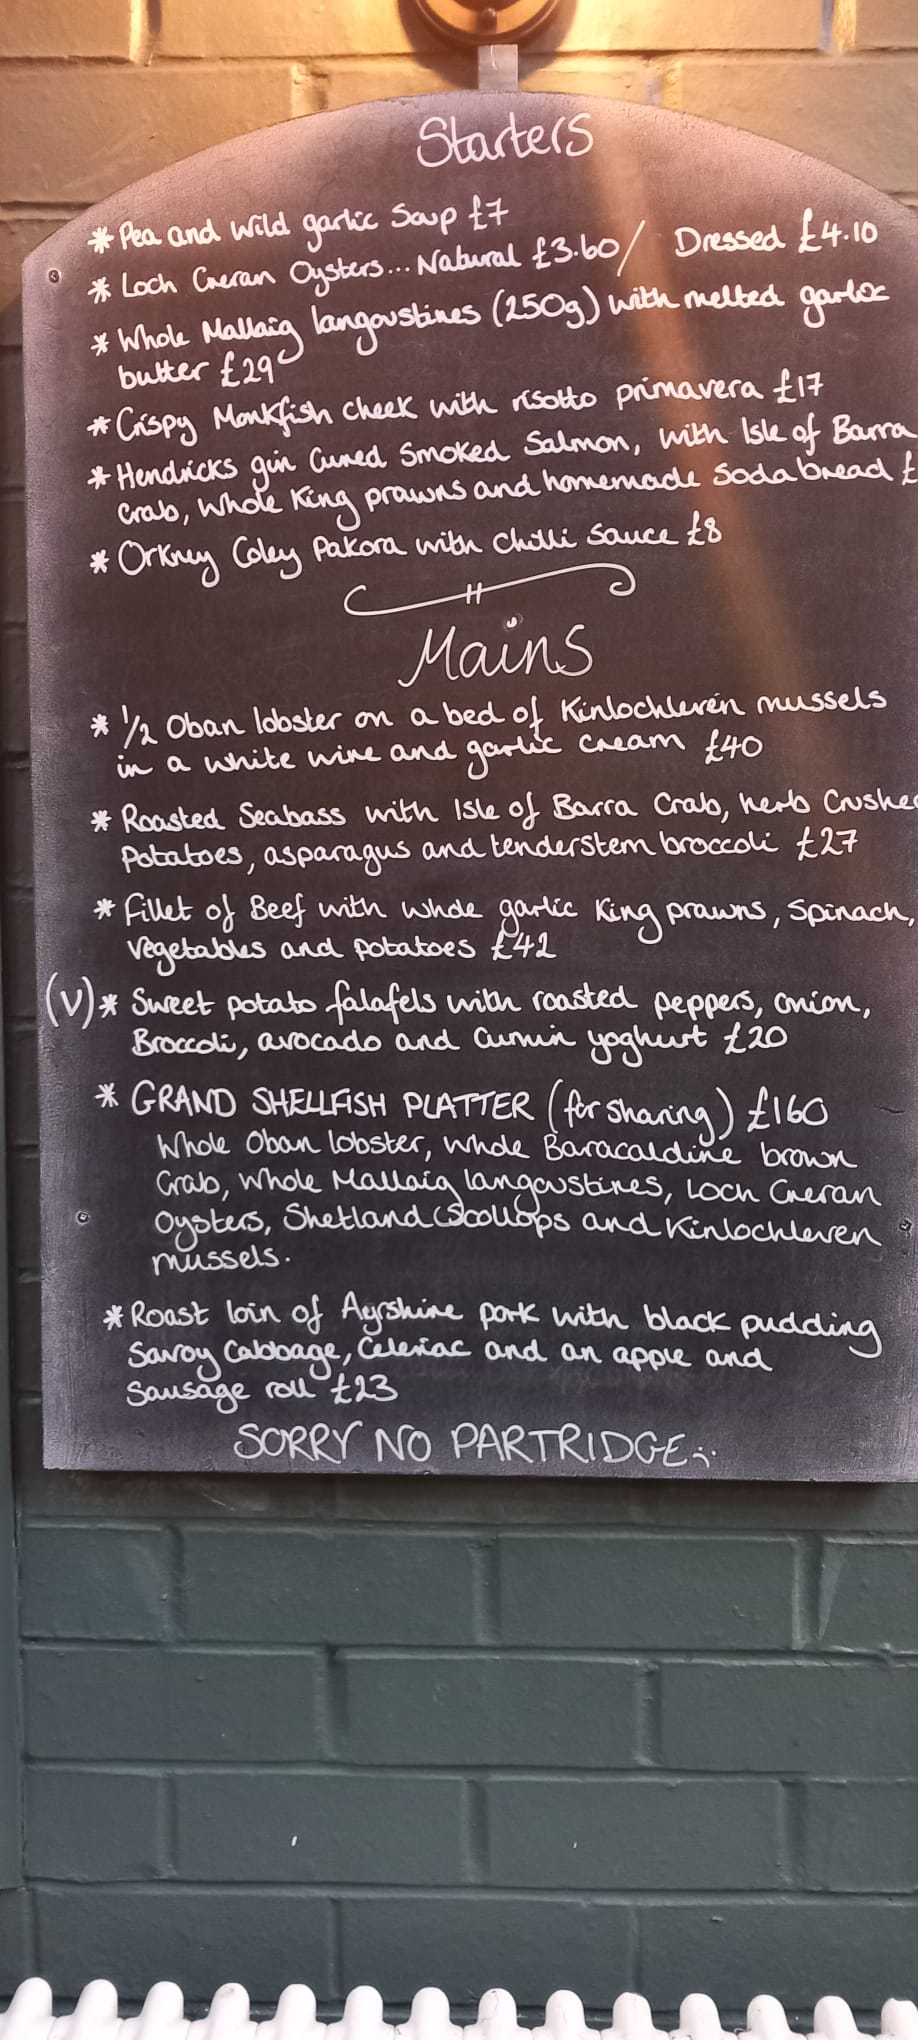 Starters
* Pea and Wild garlic Soup £7
* Loch Creran Oysters... Natural £3.60/ Dressed £4.10
* Whole Mallaig langoustines (250g) with melted garlic
butter £29
* Crispy Monkfish cheek with risotto primavera £17
* Hendricks gin Cured Smoked Salmon, with Isle of Barra
Crab, Whole King prawns and homemade Soda bread £
* Orkney Coley Pakora with Chilli Sauce £8
Mains
* 1/2 Oban lobster on a bed of Kinlochleven mussels
in a white wine and garlic cream £40
* Roasted Seabass with Isle of Barra Crab, herb Crushed
Potatoes, asparagus and tenderstem broccoli £27
* Fillet of Beef with whole garlic King prawns, Spinach,
vegetables and potatoes £42
(V) * Sweet potato falafels with roasted peppers, onion,
Broccoli, avocado and Cumin yoghurt £20
* GRAND SHELLFISH PLATTER (for sharing) £160
Whole Oban lobster, whole Baracaldine brown
Crab, whole Mallaig langoustines, Loch Creran
Oysters, Shetland Scollops and Kinlochleven
mussels.
* Roast loin of Ayrshire pork with black pudding
Savoy Cabbage, Celeriac and an apple and
Sausage roll £23
SORRY NO PARTRIDGE